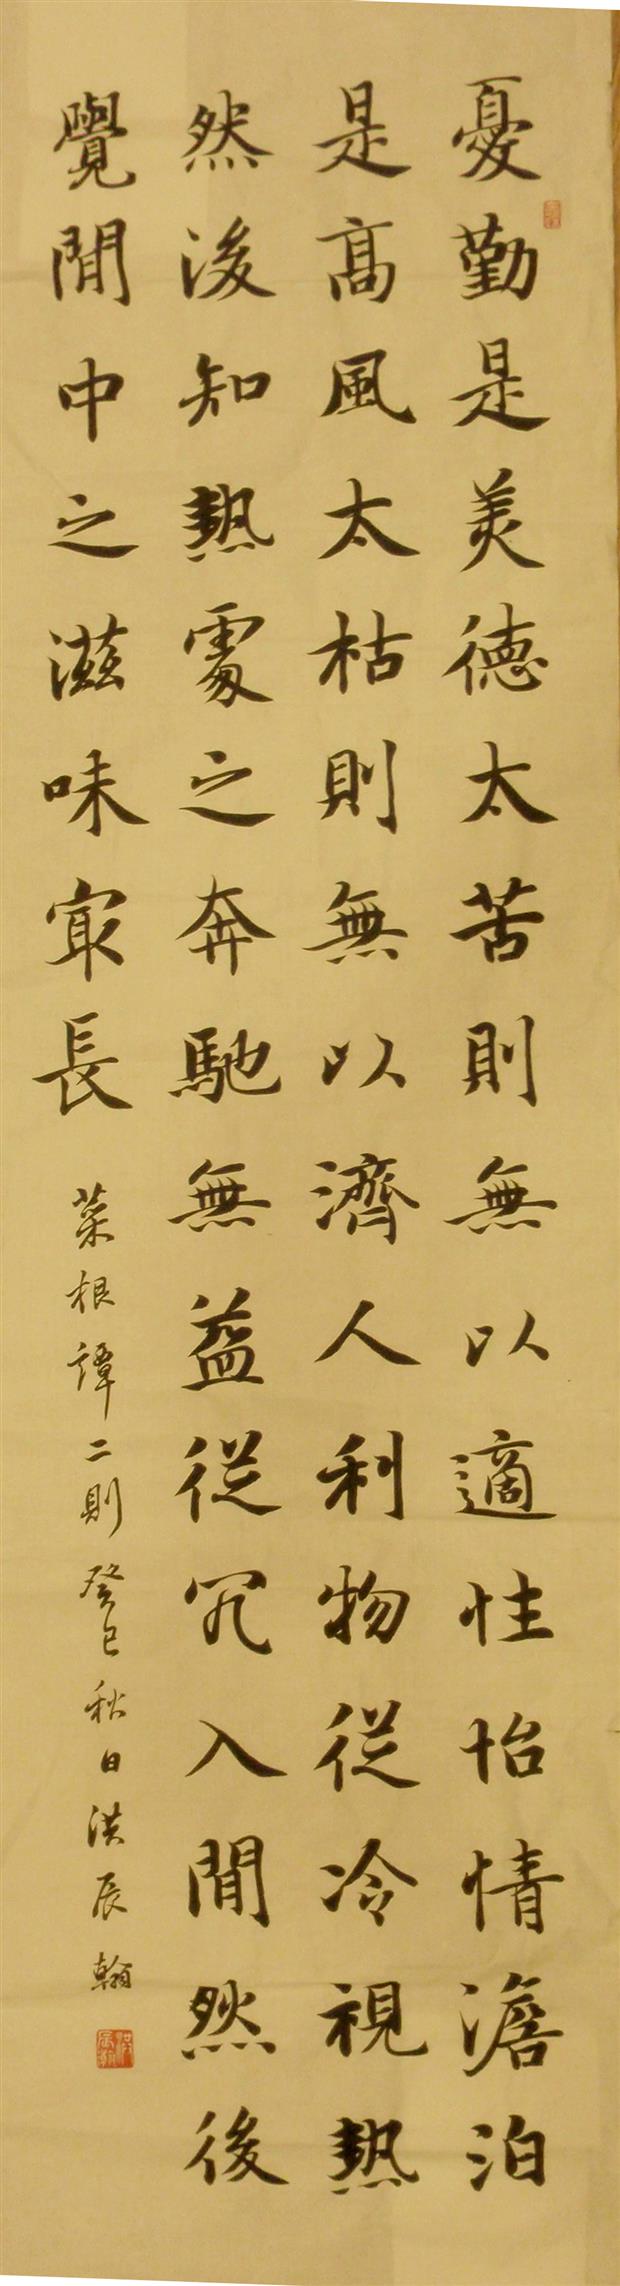 憂勤是美德太苦則無以適性怡情澹泊
是高風太枯則無以濟人利物從冷視熱
然後知熱處之奔馳無益從冗入閒然後
覺閒中之滋味冣長
菜根譚二則癸巳秋日洪辰翰